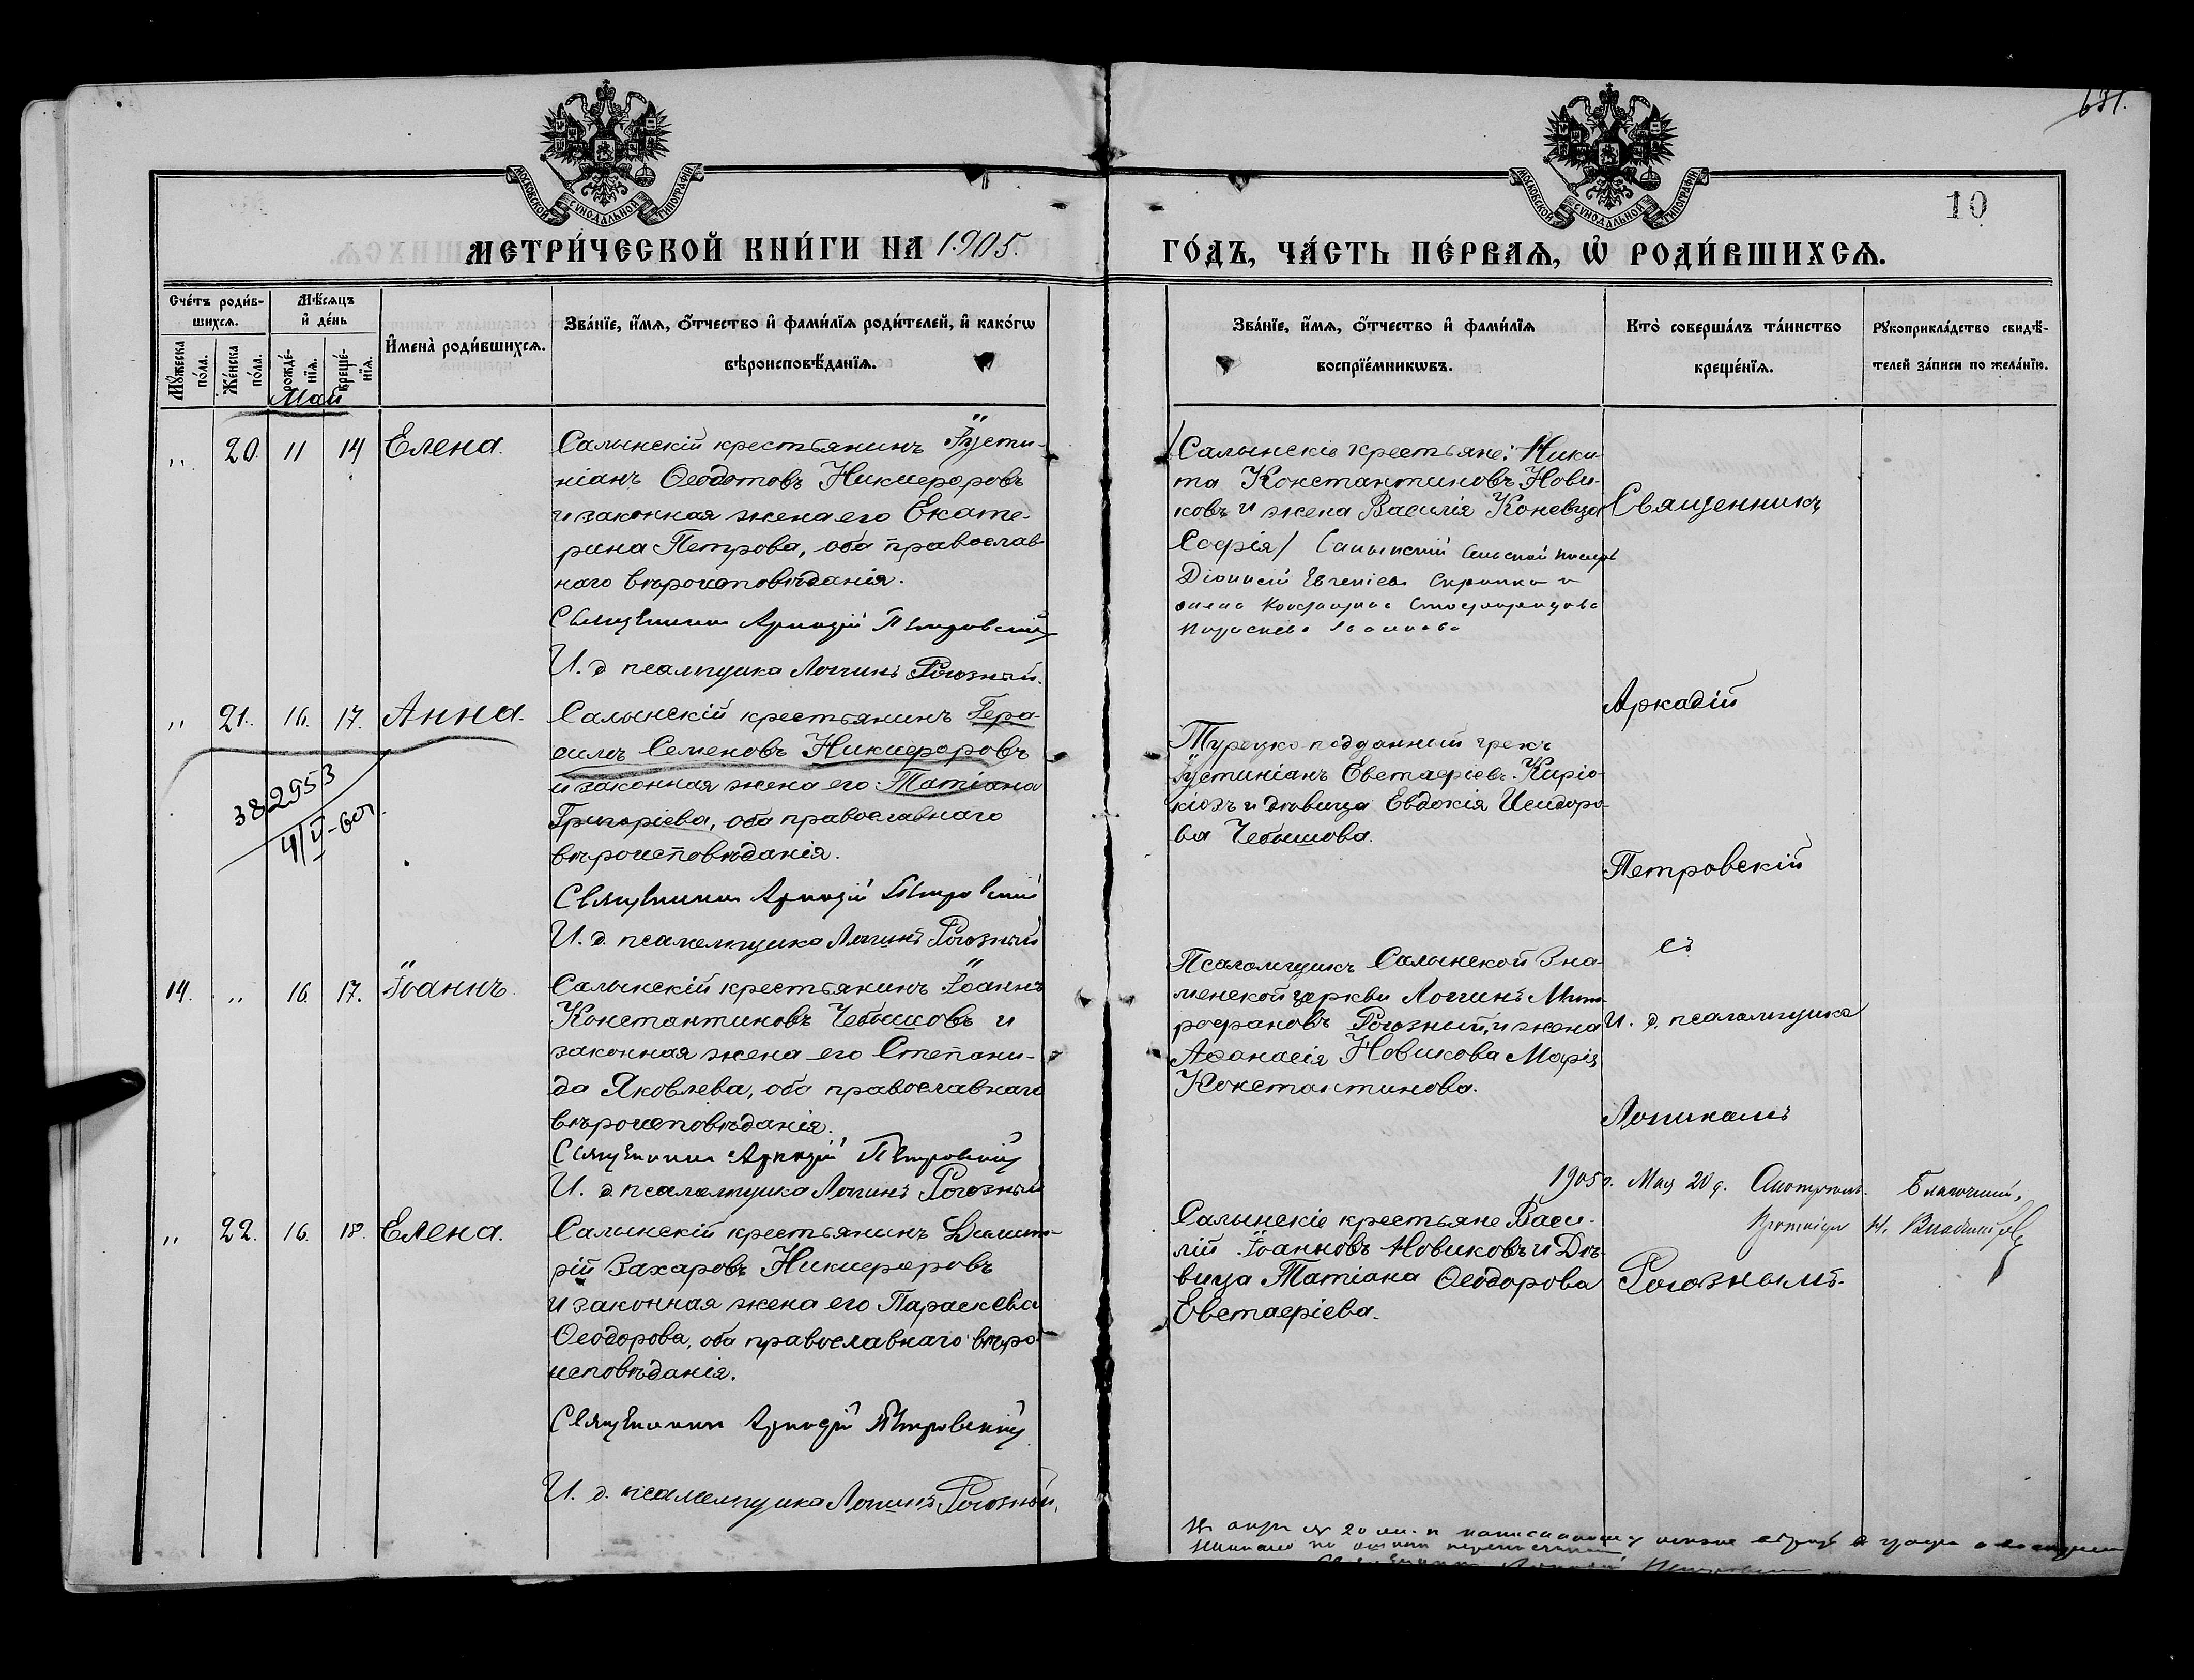 631.
10
МОСКОВСКОЙ СѴНОДАЛЬНОЙ ТИПОГРАФІИ
МОСКОВСКОЙ СѴНОДАЛЬНОЙ ТИПОГРАФІИ
МЕТРИ́ЧЕСКОЙ КНИ́ГИ НА 1905.
ГО́ДЪ, ЧА́СТЬ ПЕ́РВАЯ, Ѡ҆ РОДИ́ВШИХСѦ.
Сче́тъ роди́в-
шихсѧ.
Мꙋ́жеска по́ла.
Же́нска по́ла.
Мѣ́сѧцъ
и҆ де́нь
рожде́-
нїѧ.
креще́-
нїѧ.
И҆мена̀ роди́вшихсѧ.
Зва́нїе, и҆́мѧ, ѻ҆́тчество и҆ фами́лїѧ роди́телей, и҆ како́гѡ
вѣроисповѣ́данїѧ.
Зва́нїе, и҆́мѧ, ѻ҆́тчество и҆ фами́лїѧ
воспрїе́мникѡвъ.
Кто̀ соверша́лъ та́инство
креще́нїѧ.
Рꙋкоприкла́дство свидѣ́-
телей за́писи по жела́нїю.
Май
„ 20. 11 14 Елена.
Салынскій крестьянинъ Іусти-
ніанъ Ѳеодотовъ Никифоровъ
и законная жена его Екате-
рина Петрова, оба православ-
наго вѣроисповѣданія.
Священникъ Аркадій Петровскій
И. д. псаломщика Логинъ Рогозный.
Салынскіе крестьяне: Ники-
та Константиновъ Нови-
ковъ и жена Василія
Софія/ Салынскій
Діонисій Евгеніевъ
Священникъ
„ 21. 16. 17. Анна.
382953
Салынскій крестьянинъ Гера-
симъ Семеновъ Никифоровъ
и законная жена его Татіана
Григоріева, оба православнаго
вѣроисповѣданія.
Священникъ Аркадій Петровскій
И. д. псаломщика Логинъ Рогозный
Турецко подданный грекъ
Іустиніанъ Евстафіевъ Киріа-
и дѣвица Евдокія Исидоро-
ва Чебышова.
Аркадій
Петровскій
14. „ 16. 17. Іоаннъ.
Салынскій крестьянинъ Іоаннъ
Константиновъ Чебышовъ и
законная жена его Степани-
да Яковлева, оба православнаго
вѣроисповѣданія.
Священникъ Аркадій Петровскій
И. д. псаломщика Логинъ Рогозный
Псаломщикъ Салынской Зна-
менской церкви Логинъ Мит-
рофановъ Рогозный, и жена
Аѳанасія Новикова Марія
Константинова.
съ
И. д. псаломщика
Логиномъ
1905 г. Мая 20 д. Благочинный,
„ 22. 16. 18. Елена.
Салынскій крестьянинъ Димит-
рій Захаровъ Никифоровъ
и законная жена его Параскева
Ѳеодорова, оба православнаго вѣро-
исповѣданія.
Священникъ Аркадій Петровскій
И. д. псаломщика Логинъ Рогозный.
Салынскіе крестьяне Васи-
лій Іоанновъ Новиковъ и Дѣ-
вица Татіана Ѳеодорова
Евстафіева.
Рогознымъ.